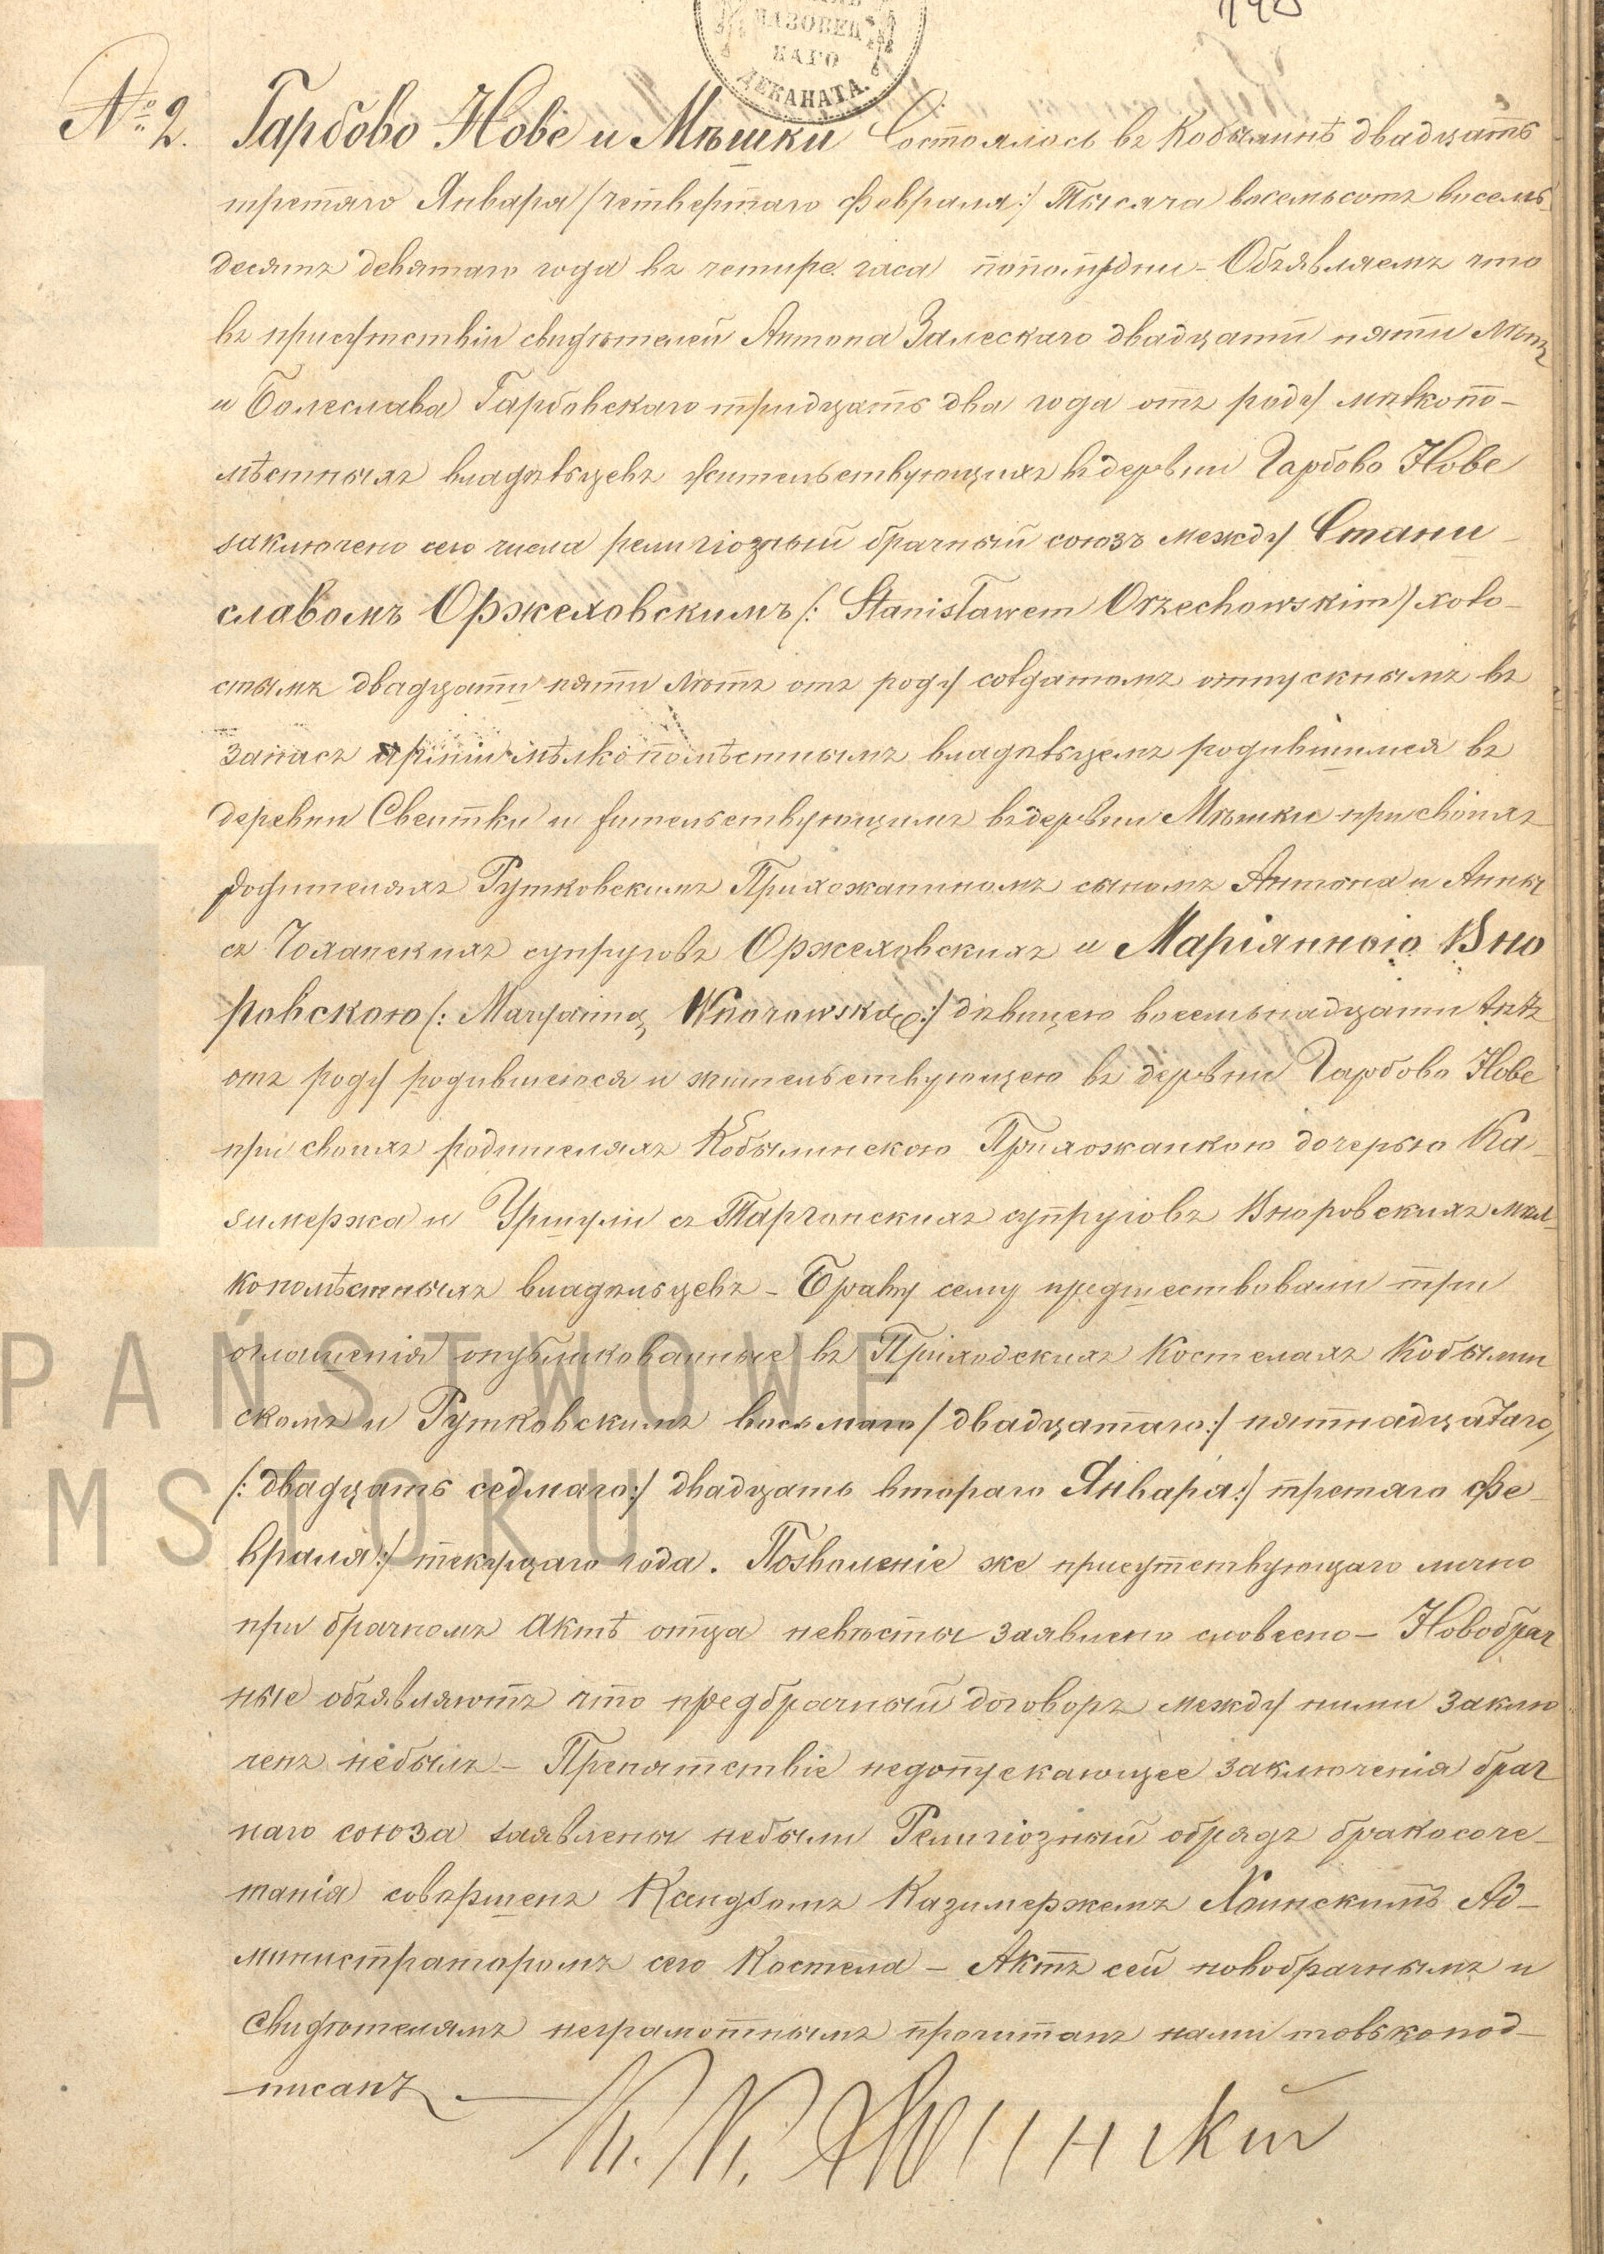 МАЗОВЕЦ
КАГО
ДЕКАНАТА.
№ 2.
Гарбово Нове и Мѣшки Состоялось въ Кобылинѣ двадцать
третяго Января /четвертаго Февраля:/ Тысяча восемьсотъ восемь-
десятъ девятаго года въ четыре часа пополудни – Объявляемъ что
въ присутствіи свидѣтелей Антона Залескаго двадцати пяти лѣтъ
и Болеслава Гарбовскаго тридцать два года отъ роду мѣлкопо-
мѣстныхъ владѣльцевъ жительствующихъ въ деревни Гарбово Нове
заключено сего числа религіозный брачный союзъ между Стани-
славомъ Оржеховскимъ /: Stanisławem Orzechowskim/ холо-
стымъ двадцати пяти лѣтъ отъ роду солдатомъ отпускнымъ въ
запасъ арміи мѣлкопомѣстнымъ владѣльцемъ родившимся въ
деревни и жительствующимъ въ деревни Мѣшки при своихъ
родителяхъ Рутковскимъ Прихожаниномъ сыномъ Антона и Анны
съ супруговъ Оржеховскихъ и Маріянною Вно
ровскою /: Maryanną Wnorowską:/ дѣвицею восемьнадцати лѣтъ
отъ роду родившеюся и жительствующею въ деревни Гарбово Нове
при своихъ родителяхъ Кобылинскою Прихожанкою дочерью Ка-
зимержа и Уршули съ Таргонскихъ супруговъ Вноровскихъ мѣл-
копомѣстныхъ владѣльцевъ – Браку сему предшествовали три
оглашенія опубликованные въ Приходскихъ Костелахъ Кобылин
скомъ и Рутковскимъ восьмаго /двадцатаго:/ пятнадцатаго,
/: двадцать седмаго:/ двадцать втораго Января:/ третяго Фе-
враля:/ текущаго года. Позволеніе же присутствующаго лично
при брачномъ актѣ отца невѣсты заявлено словесно – Новобрач
ные объявляютъ что предбрачный договоръ между ними заклю
ченъ небылъ – Препятствіе недопускающее заключенія брач
наго союза заявлены небыли Религіозный обрядъ бракосоче-
танія совершенъ Ксендзомъ Казимержемъ Ад-
министраторомъ сего Костела – Актъ сей новобрачнымъ и
свидѣтелямъ неграмотнымъ прочитанъ нами только под-
писанъ